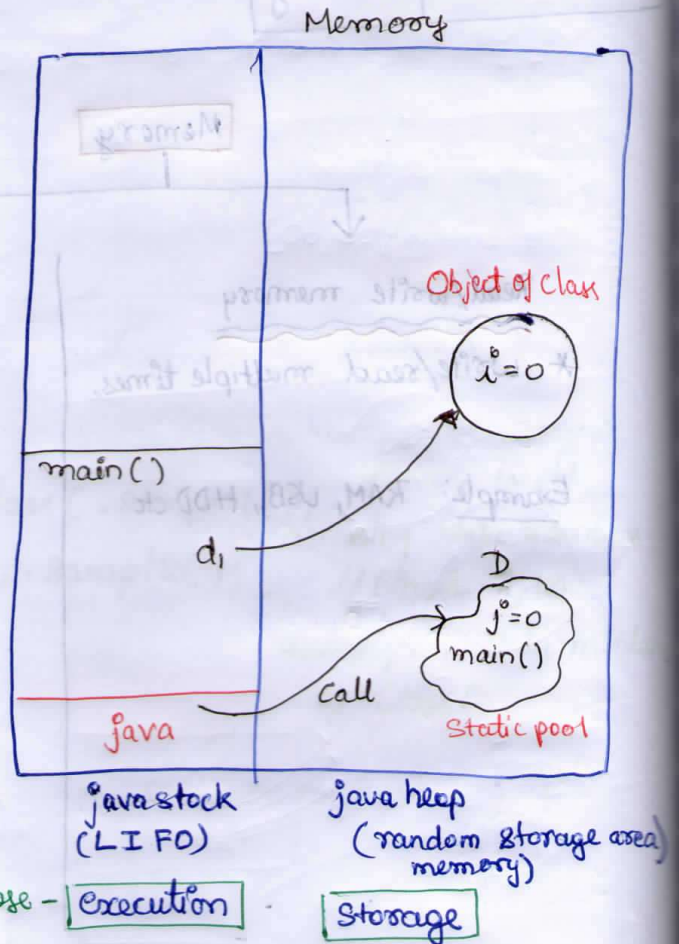 Memory
Object of Class
i=0
main()
d1
D
j=0
main()
Call
java
Static pool
java stock
(LIFO)
java heap
(random storage area
memory)
execution
Storage